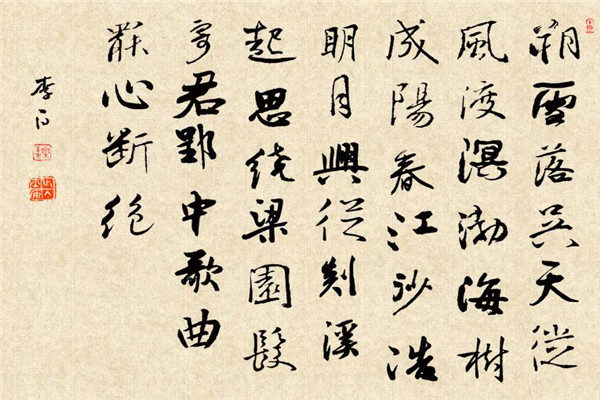 朔雪落吳天從
風渡溟渤海樹
成陽春江沙浩
明月興從剡溪
起思繞梁園髮
寄君郢中歌曲
罷心断絶
李白